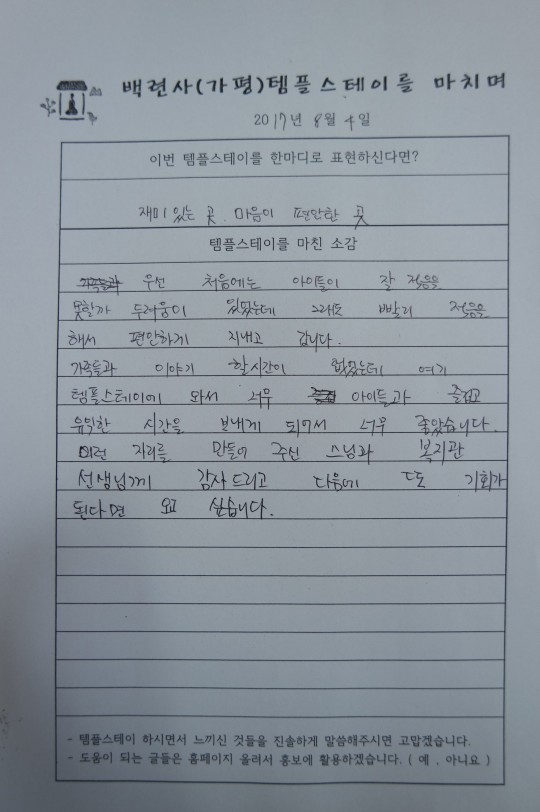 백련사(가평)템플스테이를 마치며
2017년 8월 4일
이번 템플스테이를 한마디로 표현하신다면?
재미있는 곳. 마음이 편안한 곳
템플스테이를 마친 소감
우선 처음에는 아이들이 잘 적응을
못할까 두려움이 있었는데 그래도 빨리 적응을
해서 편안하게 지내고 갑니다.
가족들과 이야기 할시간이 없었는데 여기
템플스테이에 와서 너무 아이들과 즐겁고
유익한 시간을 보내게 되어서 너무 좋았습니다.
이런 자리를 만들어 주신 스님과 복지관
선생님께 감사드리고 다음에 또 기회가
된다면 오고 싶습니다.
- 템플스테이 하시면서 느끼신 것들을 진솔하게 말씀해주시면 고맙겠습니다.
- 도움이 되는 글들은 홈페이지 올려서 홍보에 활용하겠습니다. ( 예 , 아니요 )